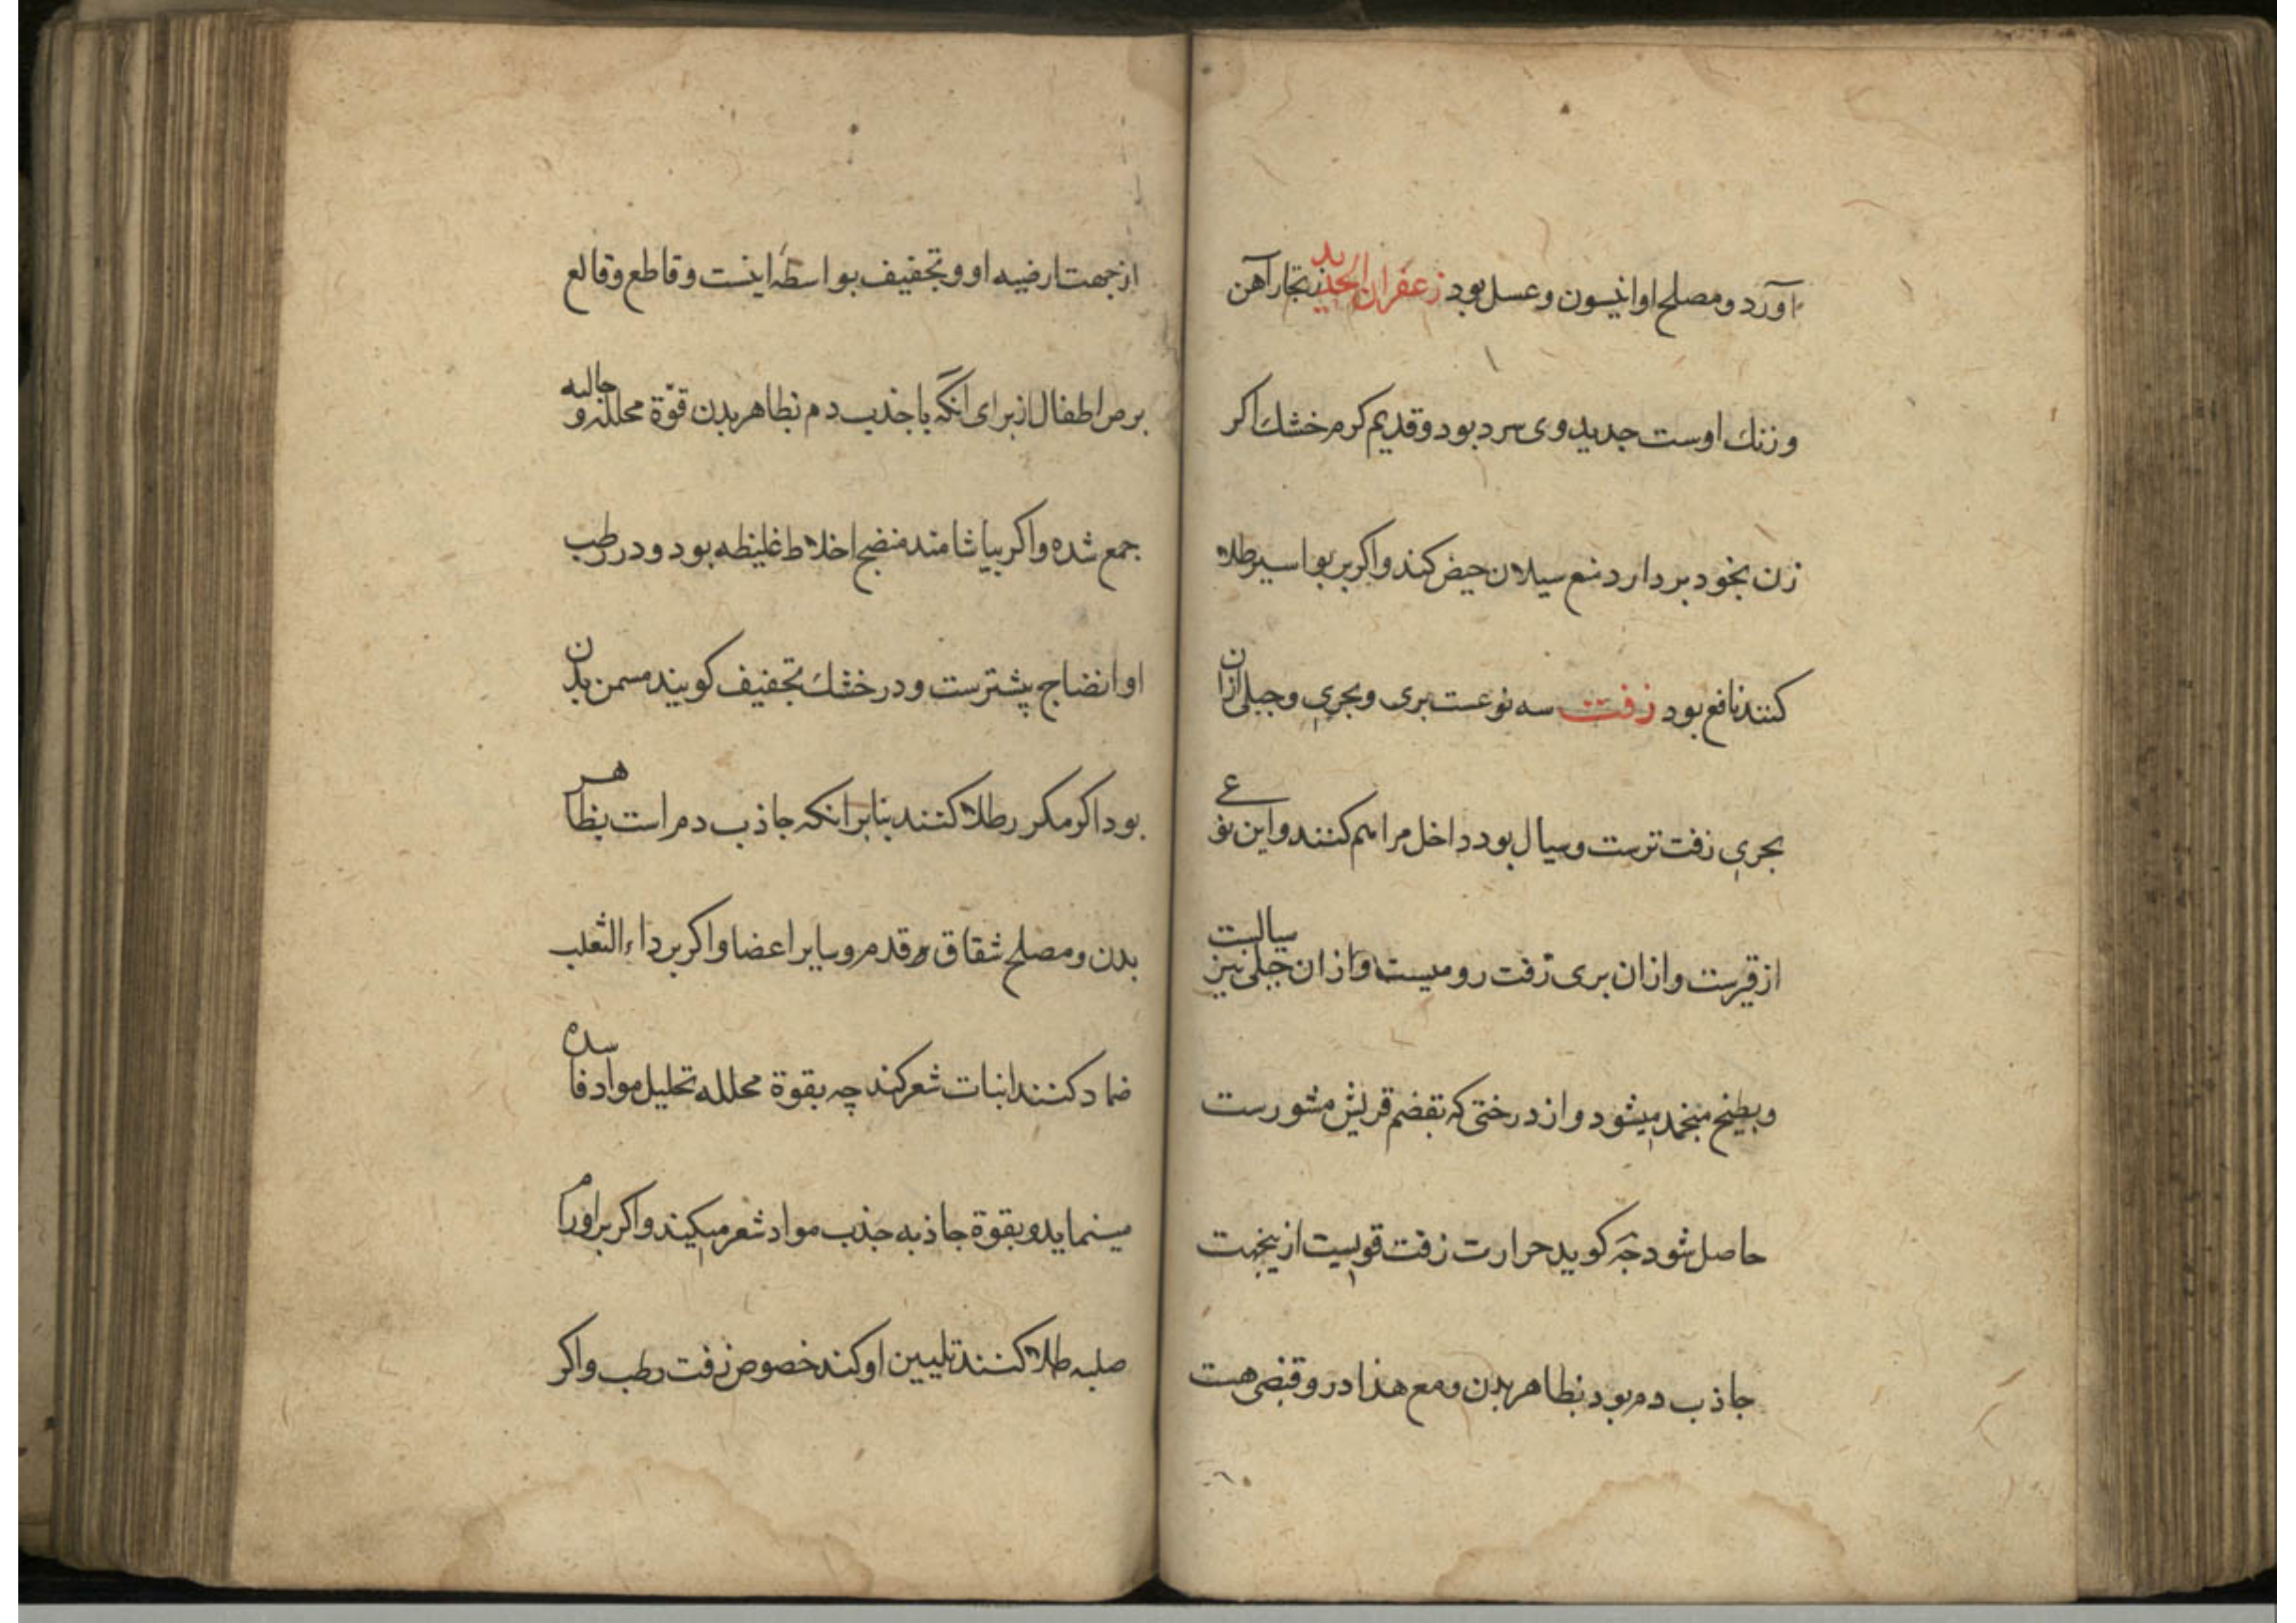 آورد و مصلح او انیسون و عسل بود زعفران الحدید زنجار آهن
و زنك اوست جدید وی سرد بود و قدیم کرم خشك اکر
زن بخود بردارد منع سیلان حیض کند و اکر بر بواسیر طلا
کنند نافع بود زفت سه نوعست بری و بحری و جبلی ازان
بحری زفت ترست و سیال بود داخل مراهم کنند و این نوع
از قیرست و ازان بری زفت رومیست و ازان جبلی نیز سیالست
و بطبخ منجمد میشود و از درختی که بقضم قریش مشورست
حاصل شود جه کوید حرارت زفت قویست ازینجهت
جاذب دم بود بظاهر بدن و مع هذا درو قبضی هست
از جهت ارضیه او و تجفیف بواسطه اینست و قاطع و قالع
برص اطفال از برای انکه با جذب دم بظاهر بدن قوة محلله و جالیه
جمع شده و اکر بیاشامند منضج اخلاط غلیظه بود و در رطب
او انضاج پیشترست و در خشك تجفیف کویند مسمن بدن
بود اکر مکرر طلا کنند بنابر انکه جاذب دم است بظاهر
بدن و مصلح شقاق قدم و سایر اعضا و اکر بر داء الثعلب
ضماد کنند انبات شعر کند چه بقوة محلله تحلیل مواد فاسده
مینماید و بقوة جاذبه جذب مواد شعر میکیند و اکر بر اورام
صلبه طلا کنند تلیین او کند خصوص زفت رطب و اکر